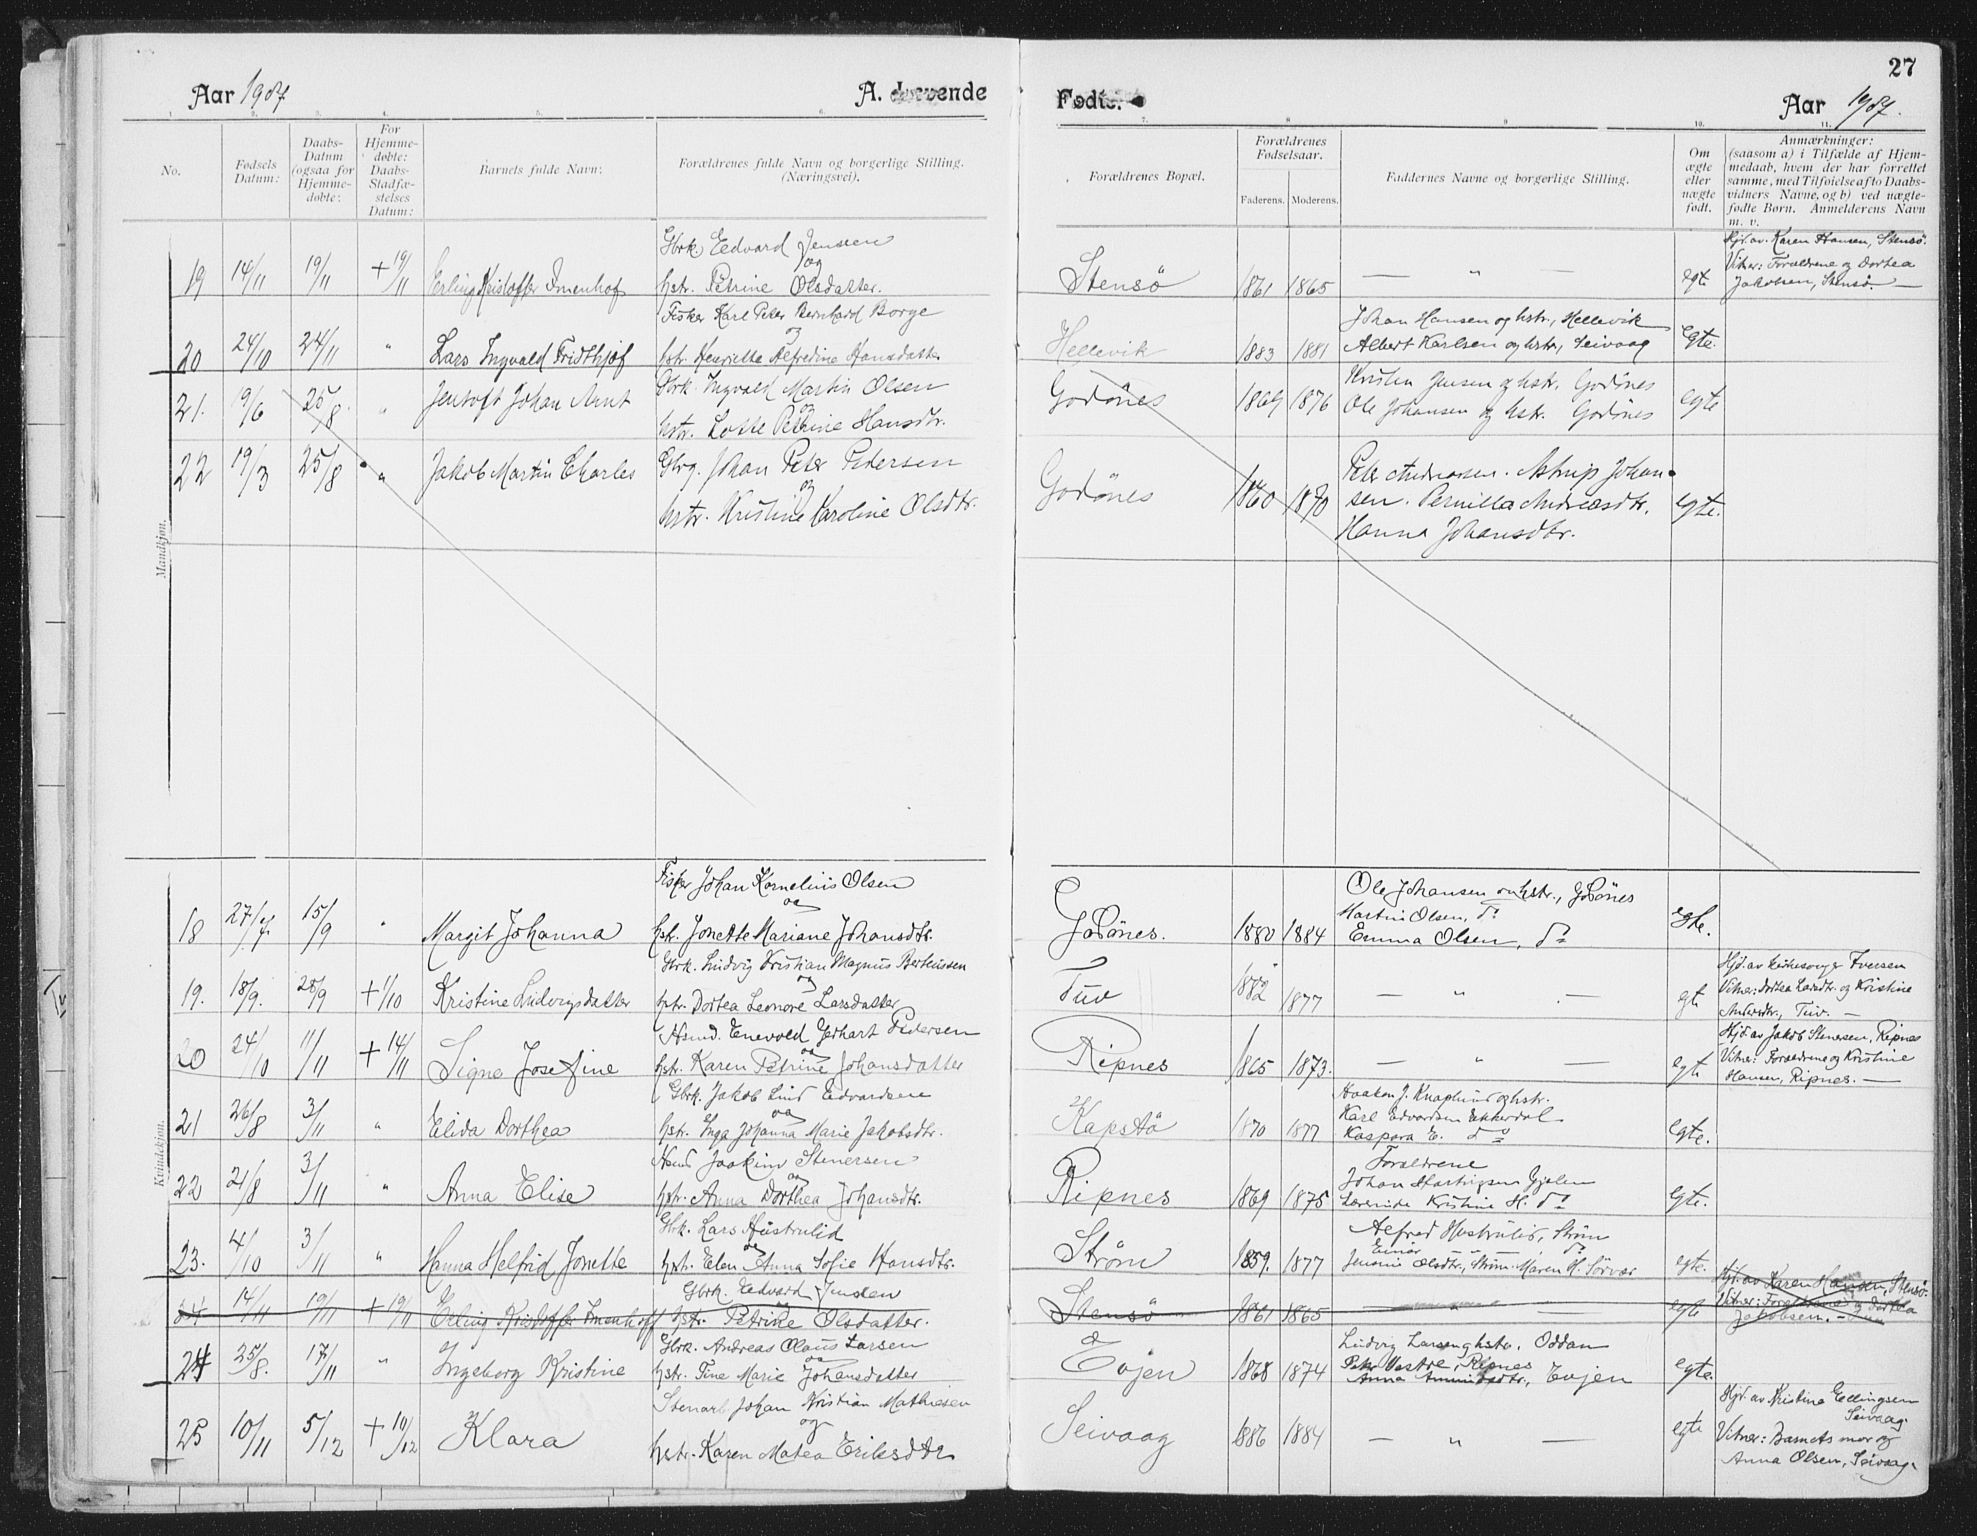 27
Aar 1907. A. Levende
Fødte. Aar 1907.
1. 2. 3. 4. 5. 6. 7. 8 9 10. 11.
No.
Fødsels Datum:
Daabs-Datum (ogsaa for Hjemme-døbte:
For Hjemme-døbte: Daabs-Stadfæ-stelses Datum:
Barnets fulde Navn:
Forældrenes fulde Navn og borgerlige Stilling. (Næringsvei).
Forældrenes Bopæl.
Forældrenes Fødselsaar.
Faderens. Moderens.
Faddernes Navne og borgerlige Stilling.
Om ægte eller uægte født.
Anmærkninger:
(saasom a) i Tilfælde af Hjem-
medaab, hvem der har forrettet
samme, med Tilføielse af to Daabs-
vidners Navne, og b) ved uægte-
fødte Børn. Anmelderens Navn
m. v.
Mandkjøn.
Gbrk Edvard Jensen
og
19 14/11 19/11 + 19/11 Erling Kristoffer Imenhof hstr. Petrine Olsdatter. Stensø 1861 1865 — " — egte
Hjd. av Karen Hansen, Stensø.
Vitner: Forældrene og Dortea
Jakobsen, Stensø. —
Fisker Karl Peter Bernhard Borge
og
20 24/10 24/11 " Lars Ingvald Fridthjof hstr. Henriette Alfredine Hansdatter Hellevik 1883 1881
Johan Hansen og hstr., Hellevik
Albert Karlsen og hstr., Seivaag egte.
21. 19/6 25/8. " Jentoft Johan Arnt Gbrk. Ingvald Martin Olsen
og
hstr. Lotte Petrine Hansdtr. Godønes 1869 1876
Kristen Jensen og hstr. Godønes
Ole Johansen og hstr. Godønes egte
22 19/3 25/8 " Jakob Martin Charles Gbrg. Johan Peter Pedersen
og
hstr. Kristine Karoline Olsdtr. Godønes 1860 1870
Peter Andreassen. Astrup Johan-
sen. Pernilla Andreasdtr.
Hanna Johansdtr. egte.
Kvindekjøn.
Fisker Johan Kornelius Olsen
og
18 27/7 15/9 " Margit Johanna hstr. Jonette Mariane Johansdtr. Godønes. 1880 1884
Ole Johansen og hstr., Godønes
Martin Olsen, do
Emma Olsen, do egte.
Gbrk. Ludvig Kristian Magnus Berteussen
og
19. 18/9. 28/9 + 1/10 Kristine Ludvigsdatter hstr. Dortea Leonore Larsdatter Tuv 1882 1877 — " — egte
Hjd. av Kirkesanger Iversen
Vitner: Dortea Larsdtr. og Kristine
Andersdtr., Tuv. —
Husmd. Enevold Gerhart Pedersen
og
20 24/10 11/11 + 14/11 Signe Josefine hstr. Karen Petrine Johansdatter Ripnes 1865 1873. — " — egte
Hjd. av Jakob Stenersen, Ripnes
Vitner: Forældrene og Kristine
Hansen, Ripnes. —
Gbrk. Jakob Lind Edvardsen
og
21 26/8 3/11 " Elida Dorthea hstr. Inga Johanna Marie Jakobsdtr. Kapstø 1870 1877
Haakon J. Knaplund og hstr.
Karl Edvardsen Ekkerdal
Kaspara E. do egte.
Joakim Stenersen
og
22 21/8 3/11 " Anna Elise hstr. Anna Dorthea Johansdtr. Ripnes 1869 1875
Forældrene
Johan Hartvigsen Gjelen
Lærerinde Kristine H. do egte.
Gbrk. Lars Hustrulid
og
23. 4/10 3/11 " Hanna Helfrid Jonette hstr. Elen Anna Sofie Hansdtr. Strøm 1859. 1877
Alfred Hustrulid, Strøm
Einar — " — do
Jensine Olsdtr., Strøm. Maren H. Sørvær egte.
Gbrk. Edvard Jensen
24 14/11 19/11 + 19/11 Erling Kristoffer Imenhoff hstr. Petrine Olsdatter. Stensø 1861 1865 — " — egte
Hjd. av Karen Hansen, Stensø.
Vitner: Forældrene og Dortea
Jakobsen. —
Gbrk. Andreas Olaus Larsen
og
24 25/8. 17/11 " Ingeborg Kristine hstr. Tine Marie Johansdatter Evjen 1868 1874
Ludvig Larsen og hstr. Oddan
Peter Vastre, Ripnes
Anna Evjen egte.
Stenarb. Johan Kristian Mathiesen
og
25 10/11 5/12 + 10/12 Klara hstr. Karen Matea Eriksdtr Seivaag 1886 1884 — " — egte
Hjd. av Kristine Ellingsen
Seivaag.
Vitner: Barnets mor og
Anna Olsen, Seivaag.